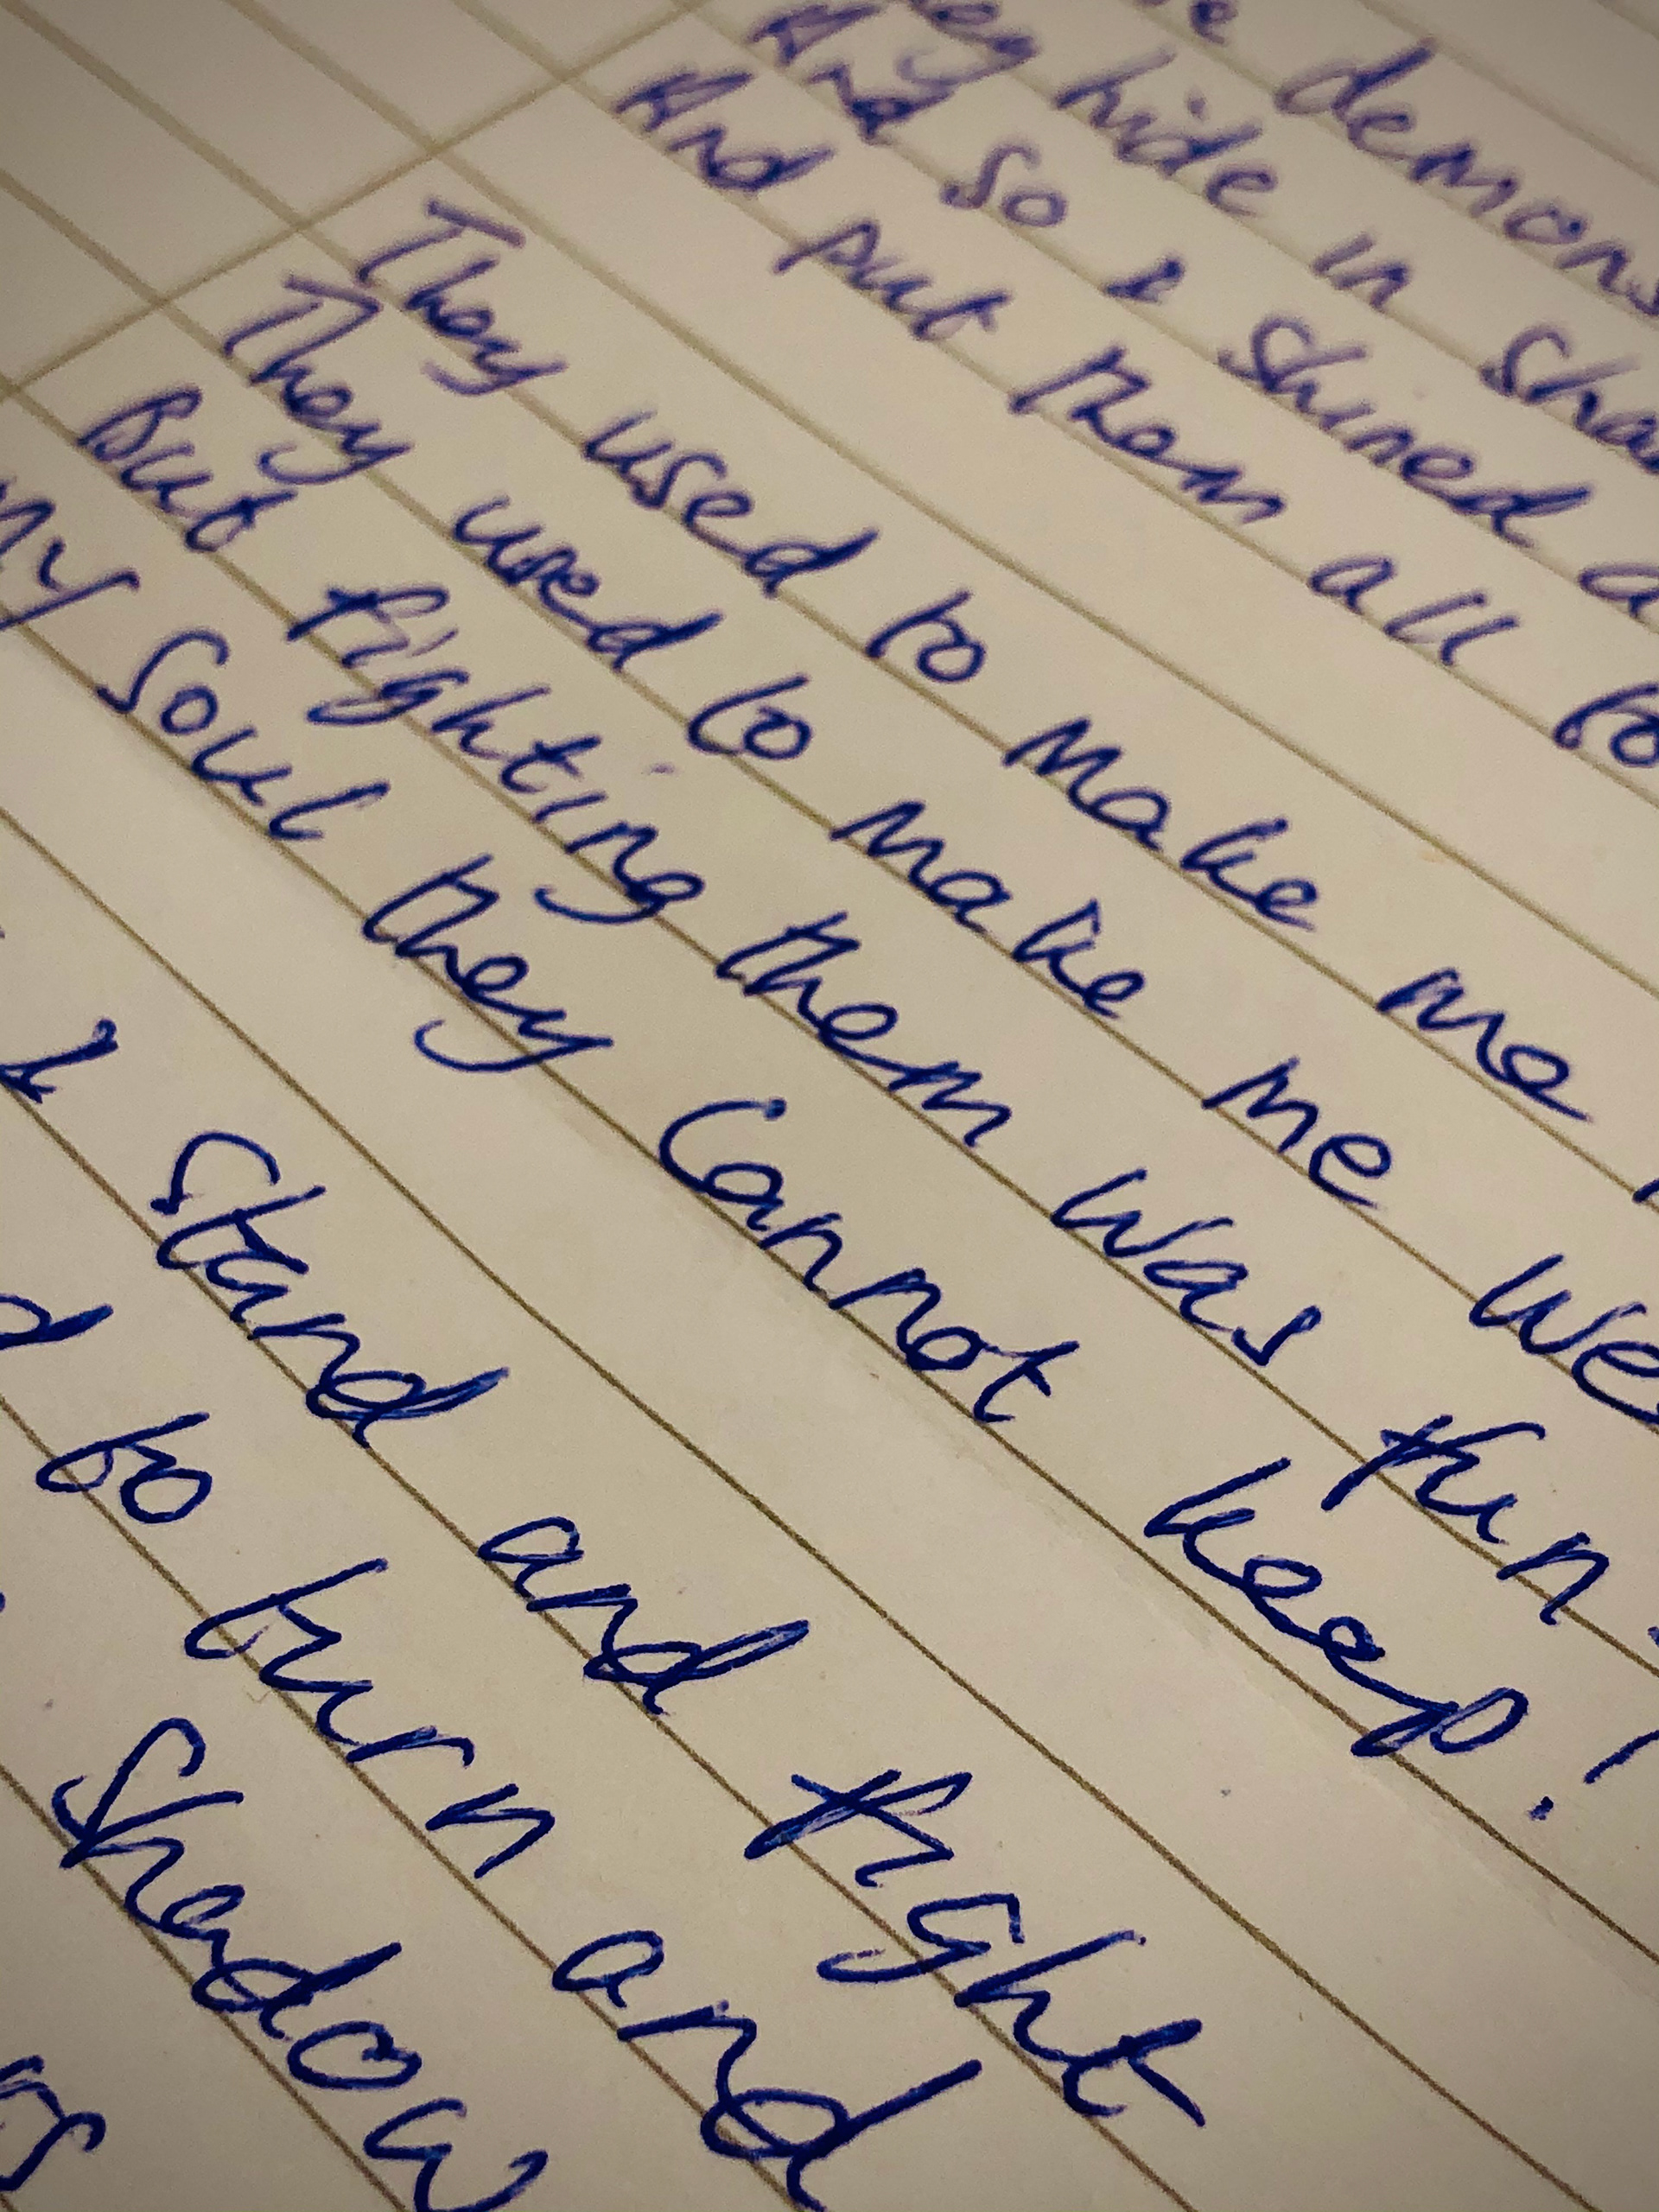 demons
hide in
And so I shined a
And put them all to
They used to make me
They used to make me
But fighting them was
my soul they cannot keep!
I stand and fight
to turn and
Shadow